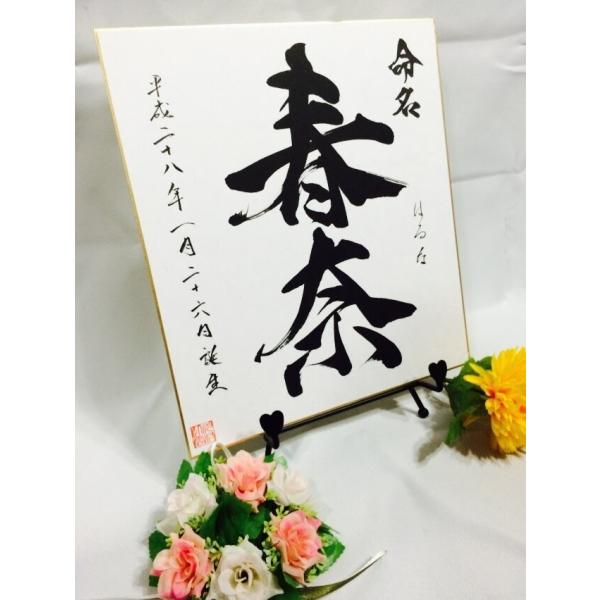 命名
はるな
春奈
平成二十八年一月二十六日誕生